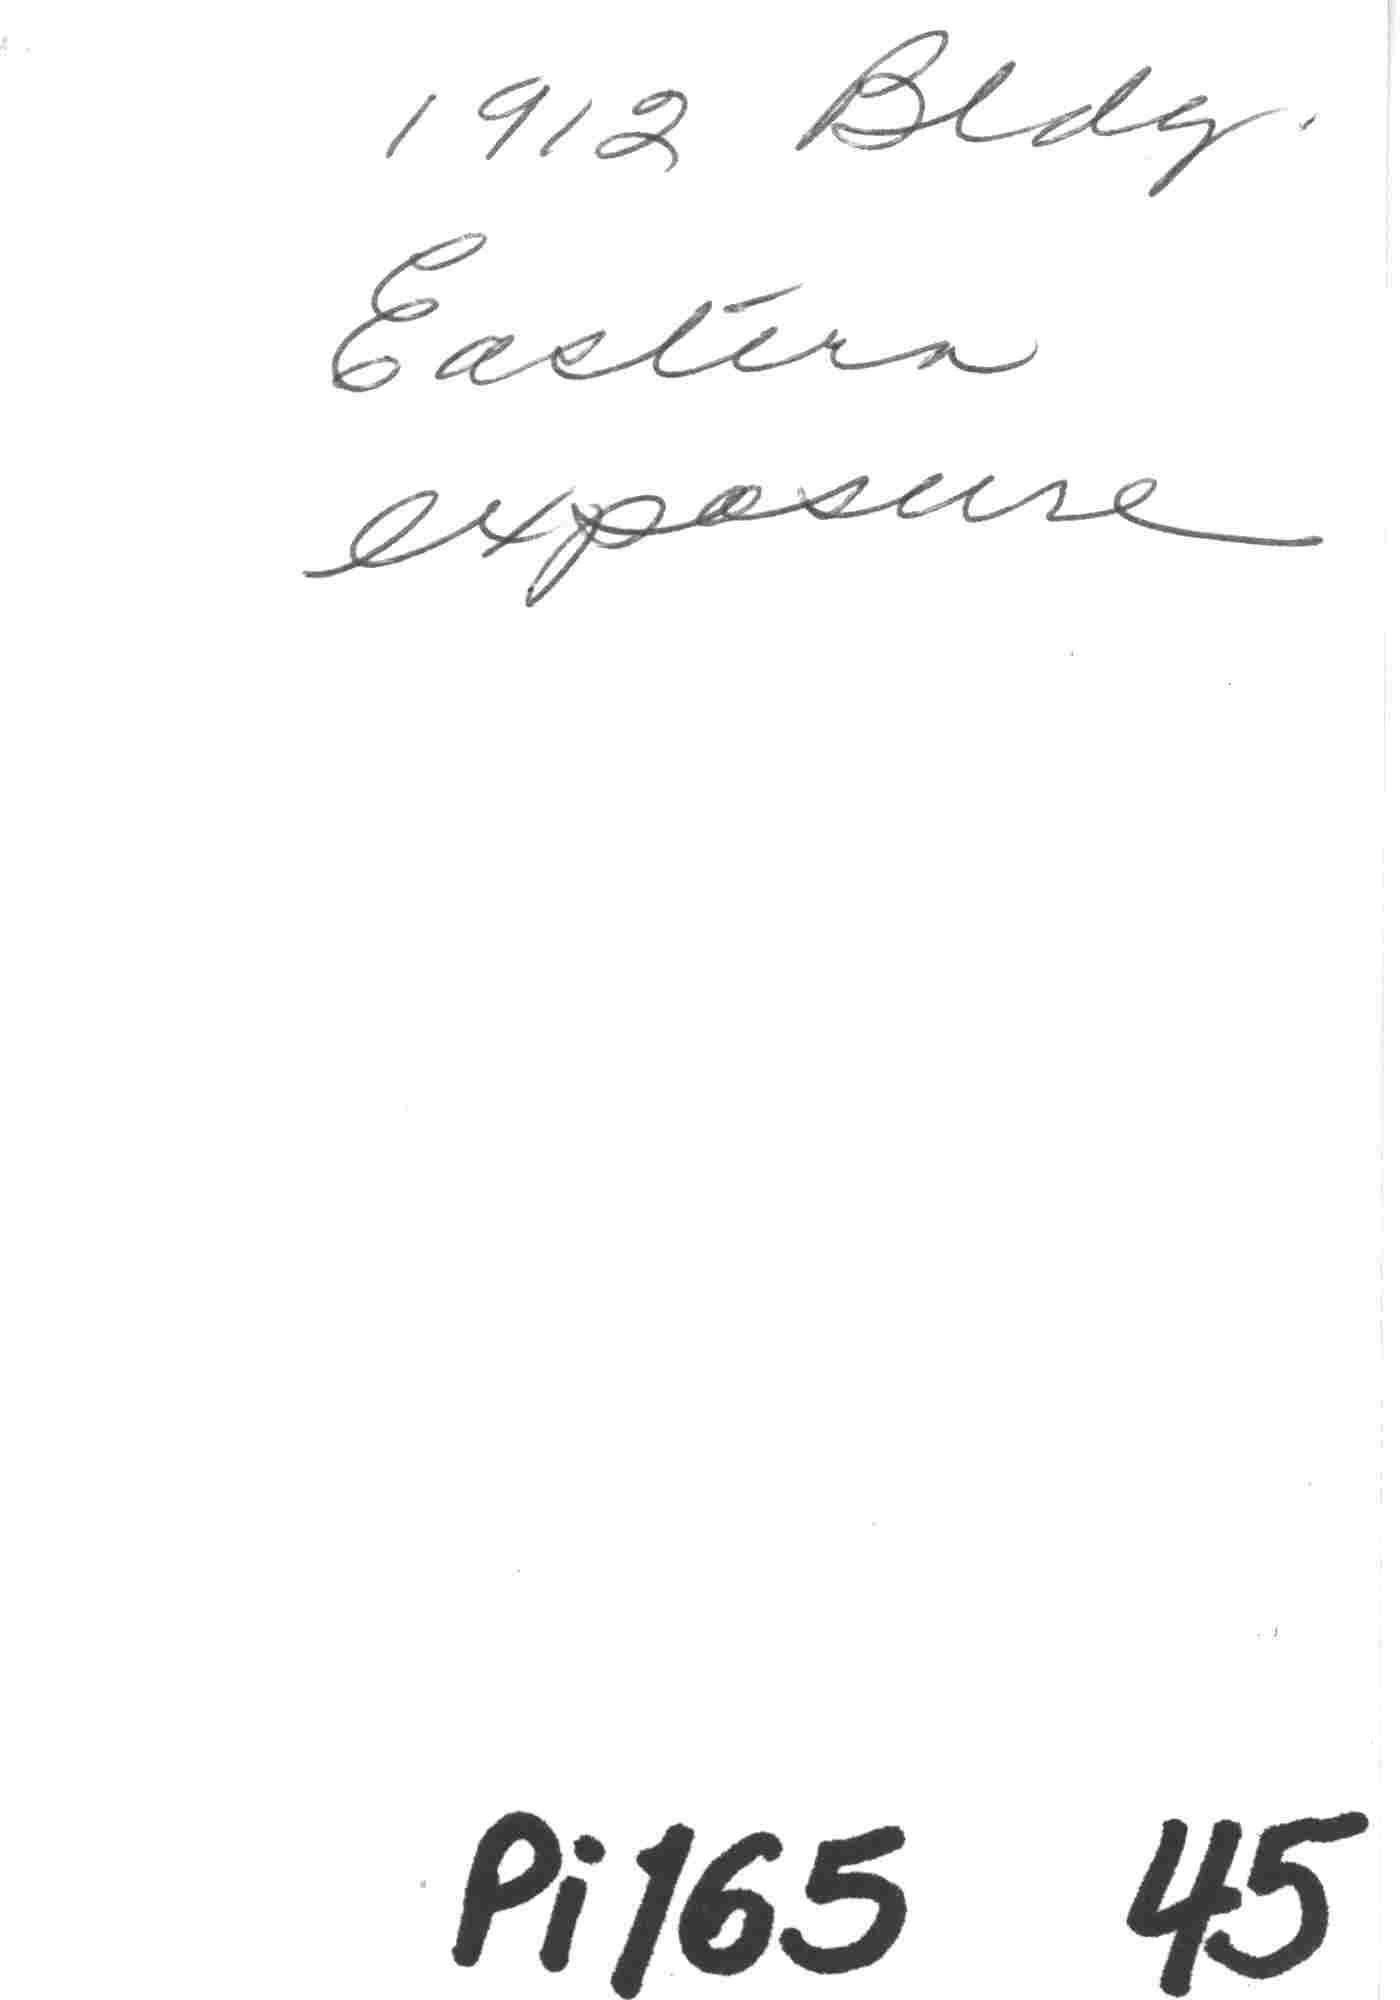 1912 Bldg.
Eastern
exposure
Pi165 45